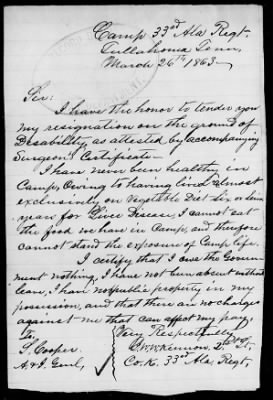 Camp 33rd Ala Regt.
Tullahoma Tenn,
March 26th 1863—
Sir:
I have the honor to tender you
my resignation on the ground of
Disability, as attested by accompanying
Surgeon's Certificate—
I have never been healthy in
Camp, Owing to having lived almost
exclusively on Vegetable Diet six or
years for Liver Disease, I cannot eat
the food we have in Camp, and therefore
cannot stand the exposure of Camp life.
I certify that I owe the Govern-
ment nothing, I have not been absent without
leave, I have no public property in my
possession, and that there are no charges
against me that can affect my pay.
Very Respectfully
To 2nd Lt,
S. Cooper Co. K. 33rd Ala Regt,
A & I Genl,